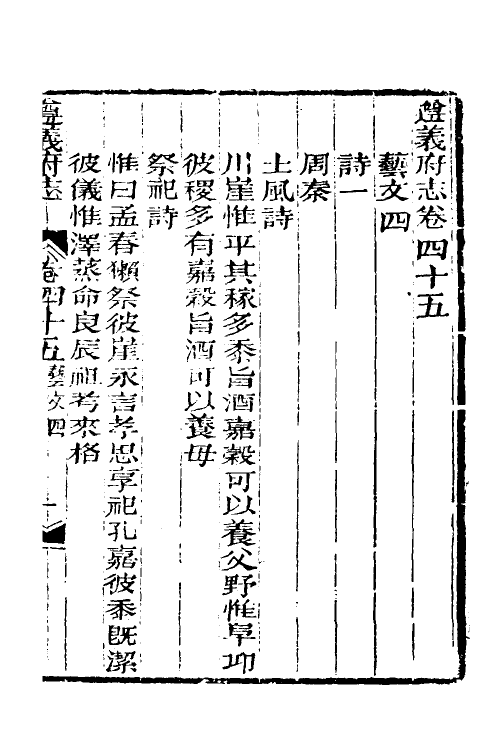 遵義府志卷四十五
藝文四
詩一
周秦
土風詩
川崖惟平其稼多黍旨酒嘉穀可以養父野惟阜丘
彼稷多有嘉穀旨酒可以養母
祭祀詩
惟曰孟春獺祭彼崖永言孝思享祀孔嘉彼黍既潔
彼儀惟澤蒸命良辰祖考來格
遵義府志 卷四十五 藝文四 一